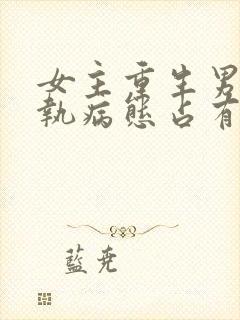 女主重生男
執病態占有
藍堯